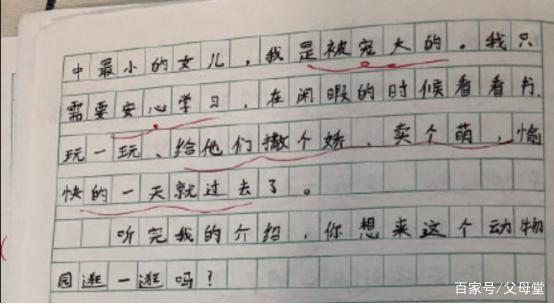 中最小的女儿，我是被宠大的。我只
需要安心学习，在闲暇的时候看看书、
玩一玩、给他们撒个娇，卖个萌，愉
快的一天就过去了。
听完我的介绍，你想来这个动物
园逛一逛吗？
百家号/父母堂